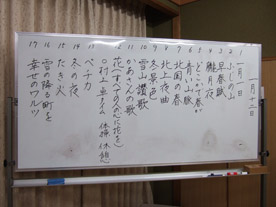 一月十三日
1 一月一日
2 ふじの山
3 早春賦
4 朧月夜
5 どこかで春が
6 青い山脈
7 北国の春
8 北上夜曲
9 冬景色
10 雪山讃歌
11 かあさんの歌
12 花(すべての人の心に花を)
13 ペチカ
14 冬の夜
15 たき火
16 雪の降る町を
17 幸せのワルツ